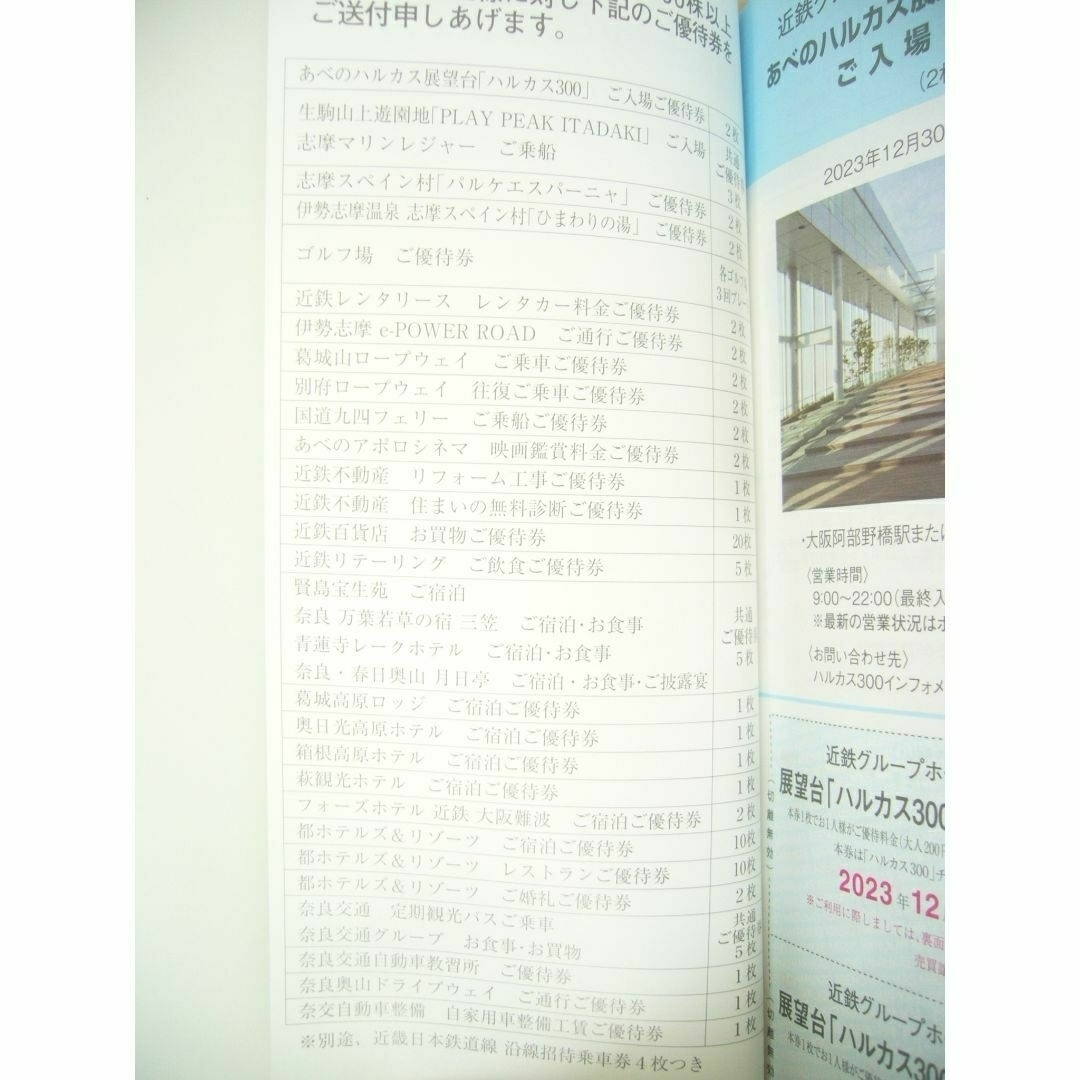 株以上
対し下記のご優待券を
ご送付申しあげます。
あべのハルカス展望台「ハルカス300」 ご入場ご優待券 2枚
生駒山上遊園地「PLAY PEAK ITADAKI」 ご入場 共通
志摩マリンレジャー ご乗船 ご優待券 3枚
志摩スペイン村「パルケエスパーニャ」 ご優待券 2枚
伊勢志摩温泉 志摩スペイン村「ひまわりの湯」 ご優待券 2枚
ゴルフ場 ご優待券 各ゴルフ 3回プレー
近鉄レンタリース レンタカー料金ご優待券 2枚
伊勢志摩 e-POWER ROAD ご通行ご優待券 2枚
葛城山ロープウェイ ご乗車ご優待券 2枚
別府ロープウェイ 往復ご乗車ご優待券 2枚
国道九四フェリー ご乗船ご優待券 2枚
あべのアポロシネマ 映画鑑賞料金ご優待券 2枚
近鉄不動産 リフォーム工事ご優待券 1枚
近鉄不動産 住まいの無料診断ご優待券 1枚
近鉄百貨店 お買物ご優待券 20枚
近鉄リテーリング ご飲食ご優待券 5枚
賢島宝生苑 ご宿泊
奈良 万葉若草の宿 三笠 ご宿泊・お食事 共通
青蓮寺レークホテル ご宿泊・お食事 ご優待券 5枚
奈良・春日奥山 月日亭 ご宿泊・お食事・ご披露宴
葛城高原ロッジ ご宿泊ご優待券 1枚
奥日光高原ホテル ご宿泊ご優待券 1枚
箱根高原ホテル ご宿泊ご優待券 1枚
萩観光ホテル ご宿泊ご優待券 1枚
フォーズホテル 近鉄 大阪難波 ご宿泊ご優待券 2枚
都ホテルズ&リゾーツ ご宿泊ご優待券 10枚
都ホテルズ&リゾーツ レストランご優待券 10枚
都ホテルズ&リゾーツ ご婚礼ご優待券 2枚
奈良交通 定期観光バスご乗車 共通
奈良交通グループ お食事・お買物 ご優待券 5枚
奈良交通自動車教習所 ご優待券 1枚
奈良奥山ドライブウェイ ご通行ご優待券 1枚
奈交自動車整備 自家用車整備工賃ご優待券 1枚
※別途、近畿日本鉄道線 沿線招待乗車券4枚つき
近鉄グ
あべのハルカス展
ご入場
(2枚
2023年12月30
・大阪阿部野橋駅または
〈営業時間〉
9:00~22:00(最終入
※最新の営業状況はホ
〈お問い合わせ先〉
ハルカス300インフォメ
(切離無効)
近鉄グループホ
展望台「ハルカス300
本券1枚でお1人様がご優待料金(大人200円
本券は「ハルカス300」チ
2023年12
※ご利用に際しましては、裏面
売買
近鉄グループホ
展望台「ハルカス300
本券1枚でお1人様がご優